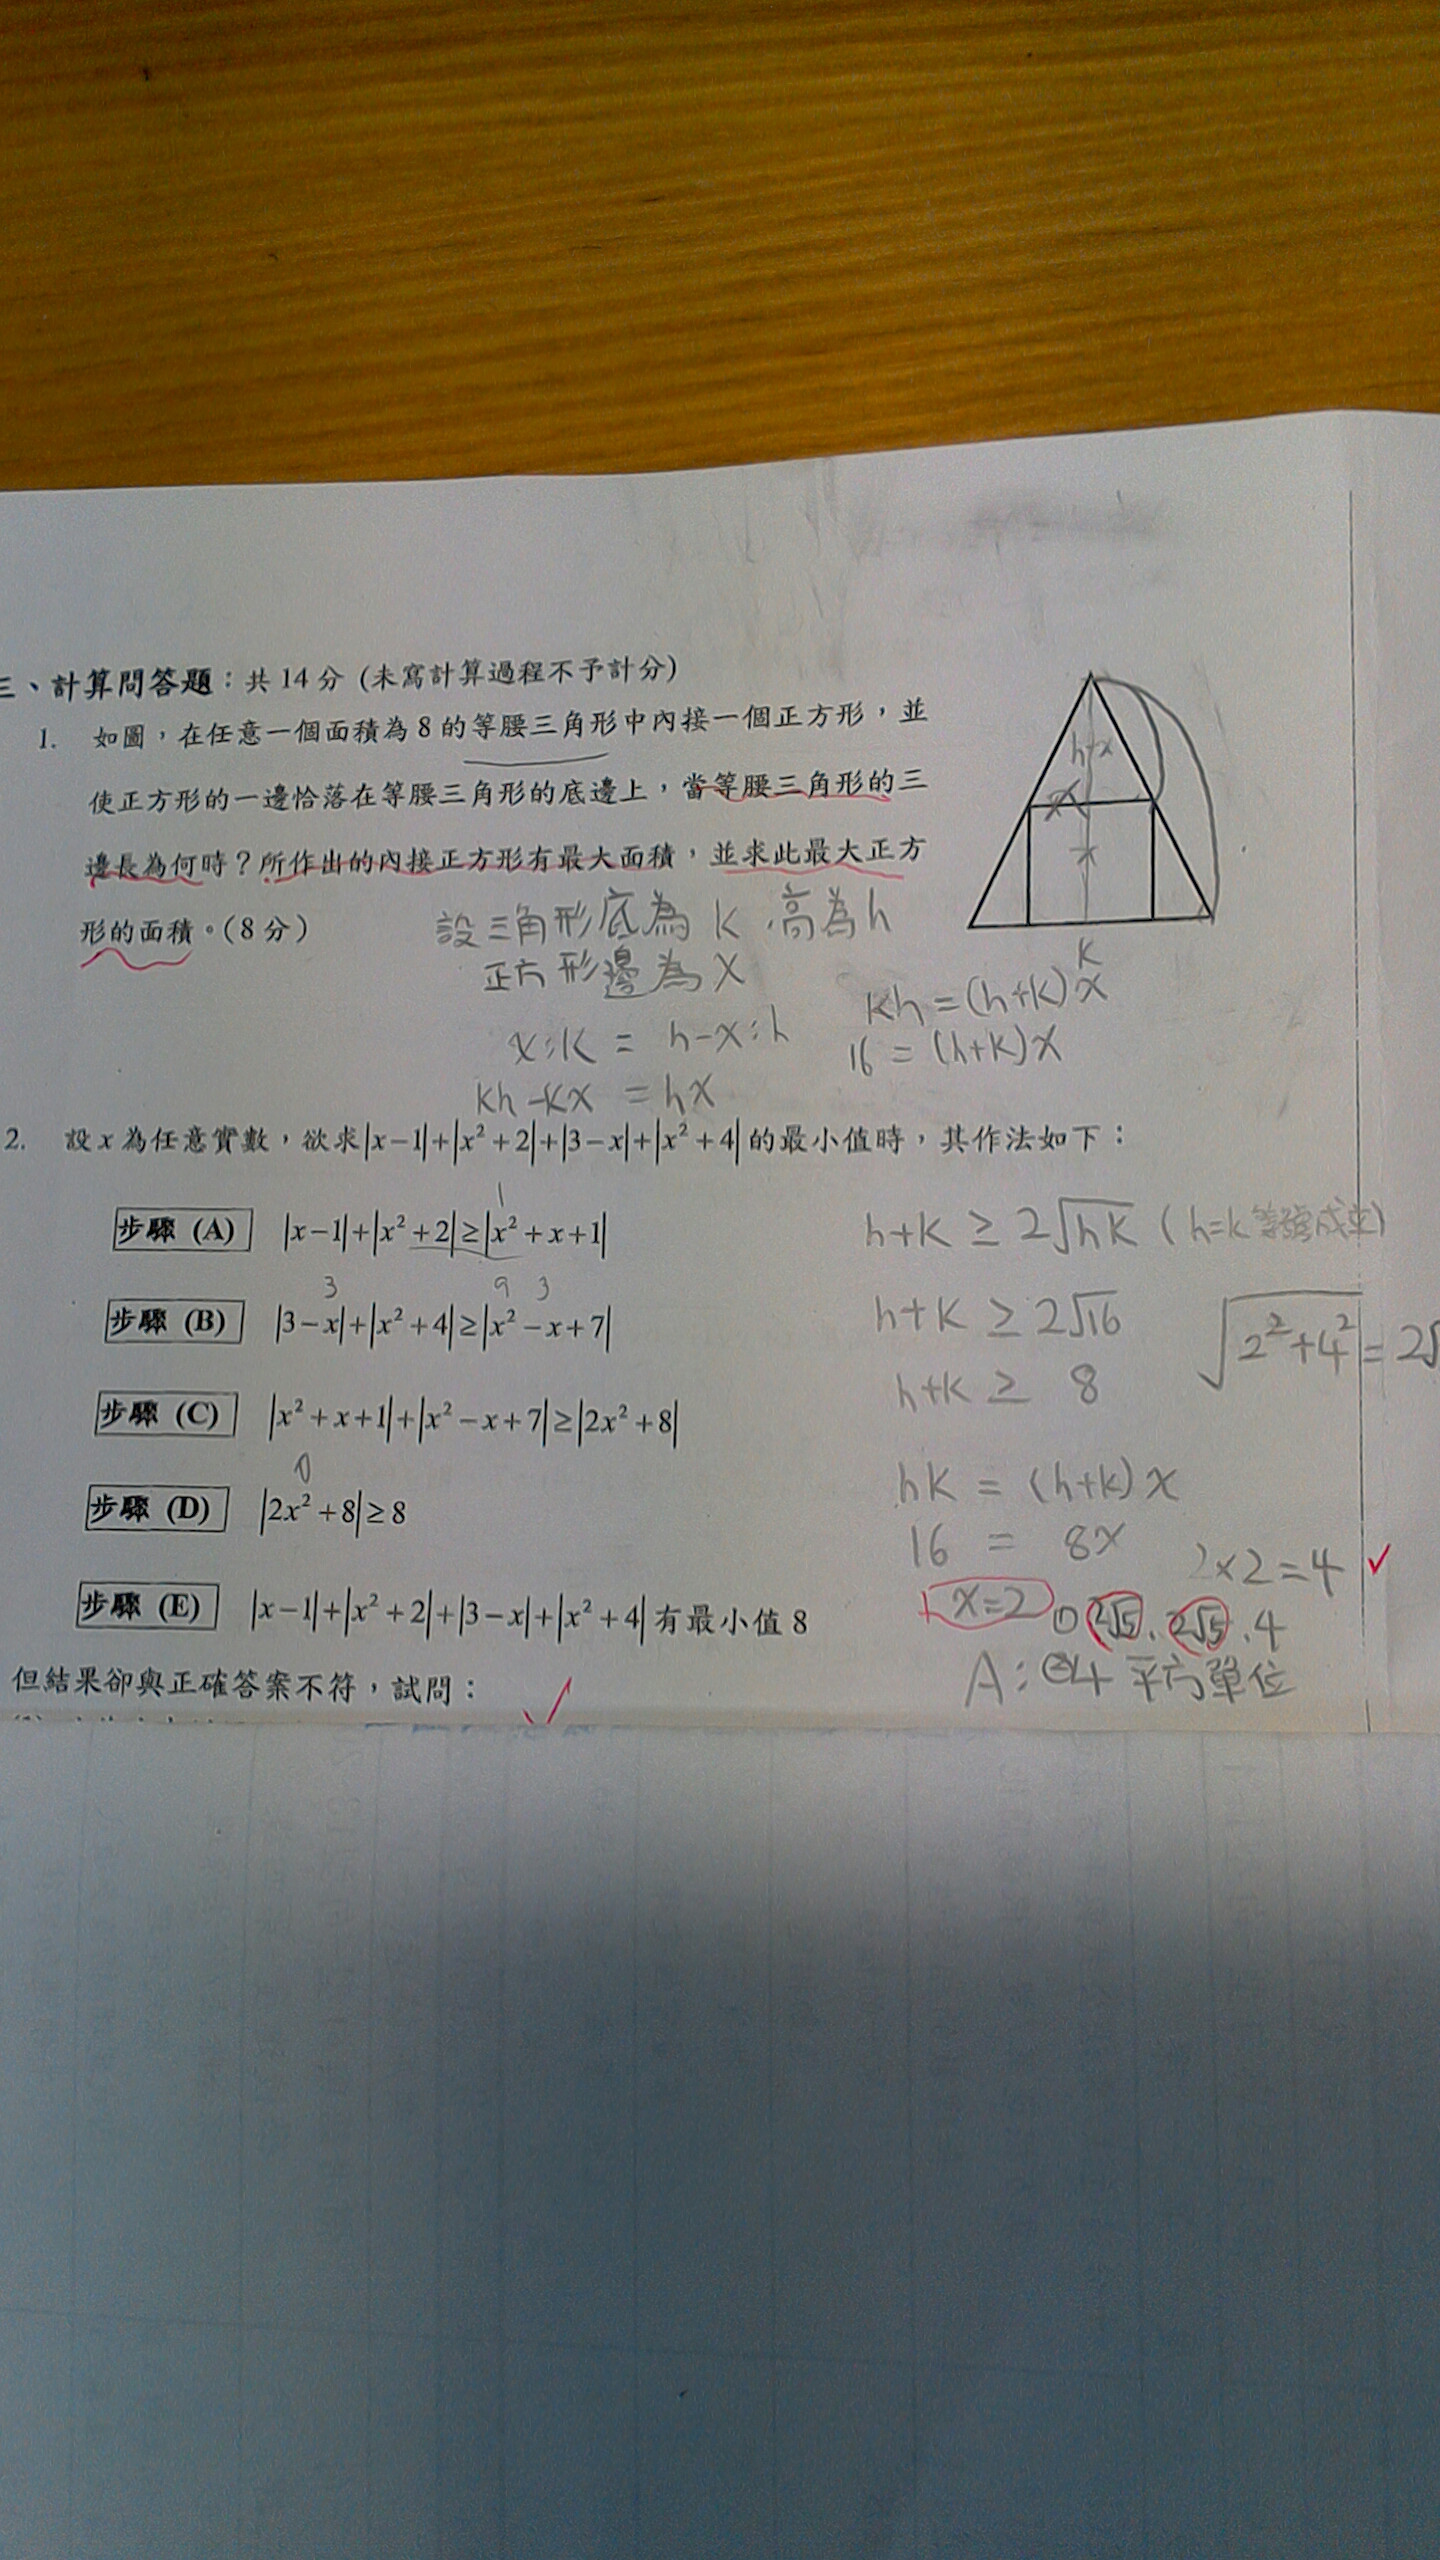 三、計算問答題：共14分 (未寫計算過程不予計分)
1. 如圖，在任意一個面積為8的等腰三角形中內接一個正方形，並
使正方形的一邊恰落在等腰三角形的底邊上，當等腰三角形的三
邊長為何時？所作出的內接正方形有最大面積，並求此最大正方
形的面積。(8分)
h-x
x
x
k
設三角形底為k，高為h
正方形邊為x
x:k = h-x:h
kh-kx = hx
kh=(h+k)x
16=(h+k)x
2. 設x為任意實數，欲求|x-1|+|x²+2|+|3-x|+|x²+4|的最小值時，其作法如下：
1
步驟 (A) |x-1|+|x²+2|≥|x²+x+1|
3 9 3
步驟 (B) |3-x|+|x²+4|≥|x²-x+7|
步驟 (C) |x²+x+1|+|x²-x+7|≥|2x²+8|
0
步驟 (D) |2x²+8|≥8
步驟 (E) |x-1|+|x²+2|+|3-x|+|x²+4|有最小值8
但結果卻與正確答案不符，試問：
h+k ≥ 2√hk (h=k 等號成立)
h+k ≥ 2√16
h+k ≥ 8
√2²+4² = 2√
hk = (h+k)x
16 = 8x
2×2=4
x=2
① 2√5，2√5，4
A：②4平方單位